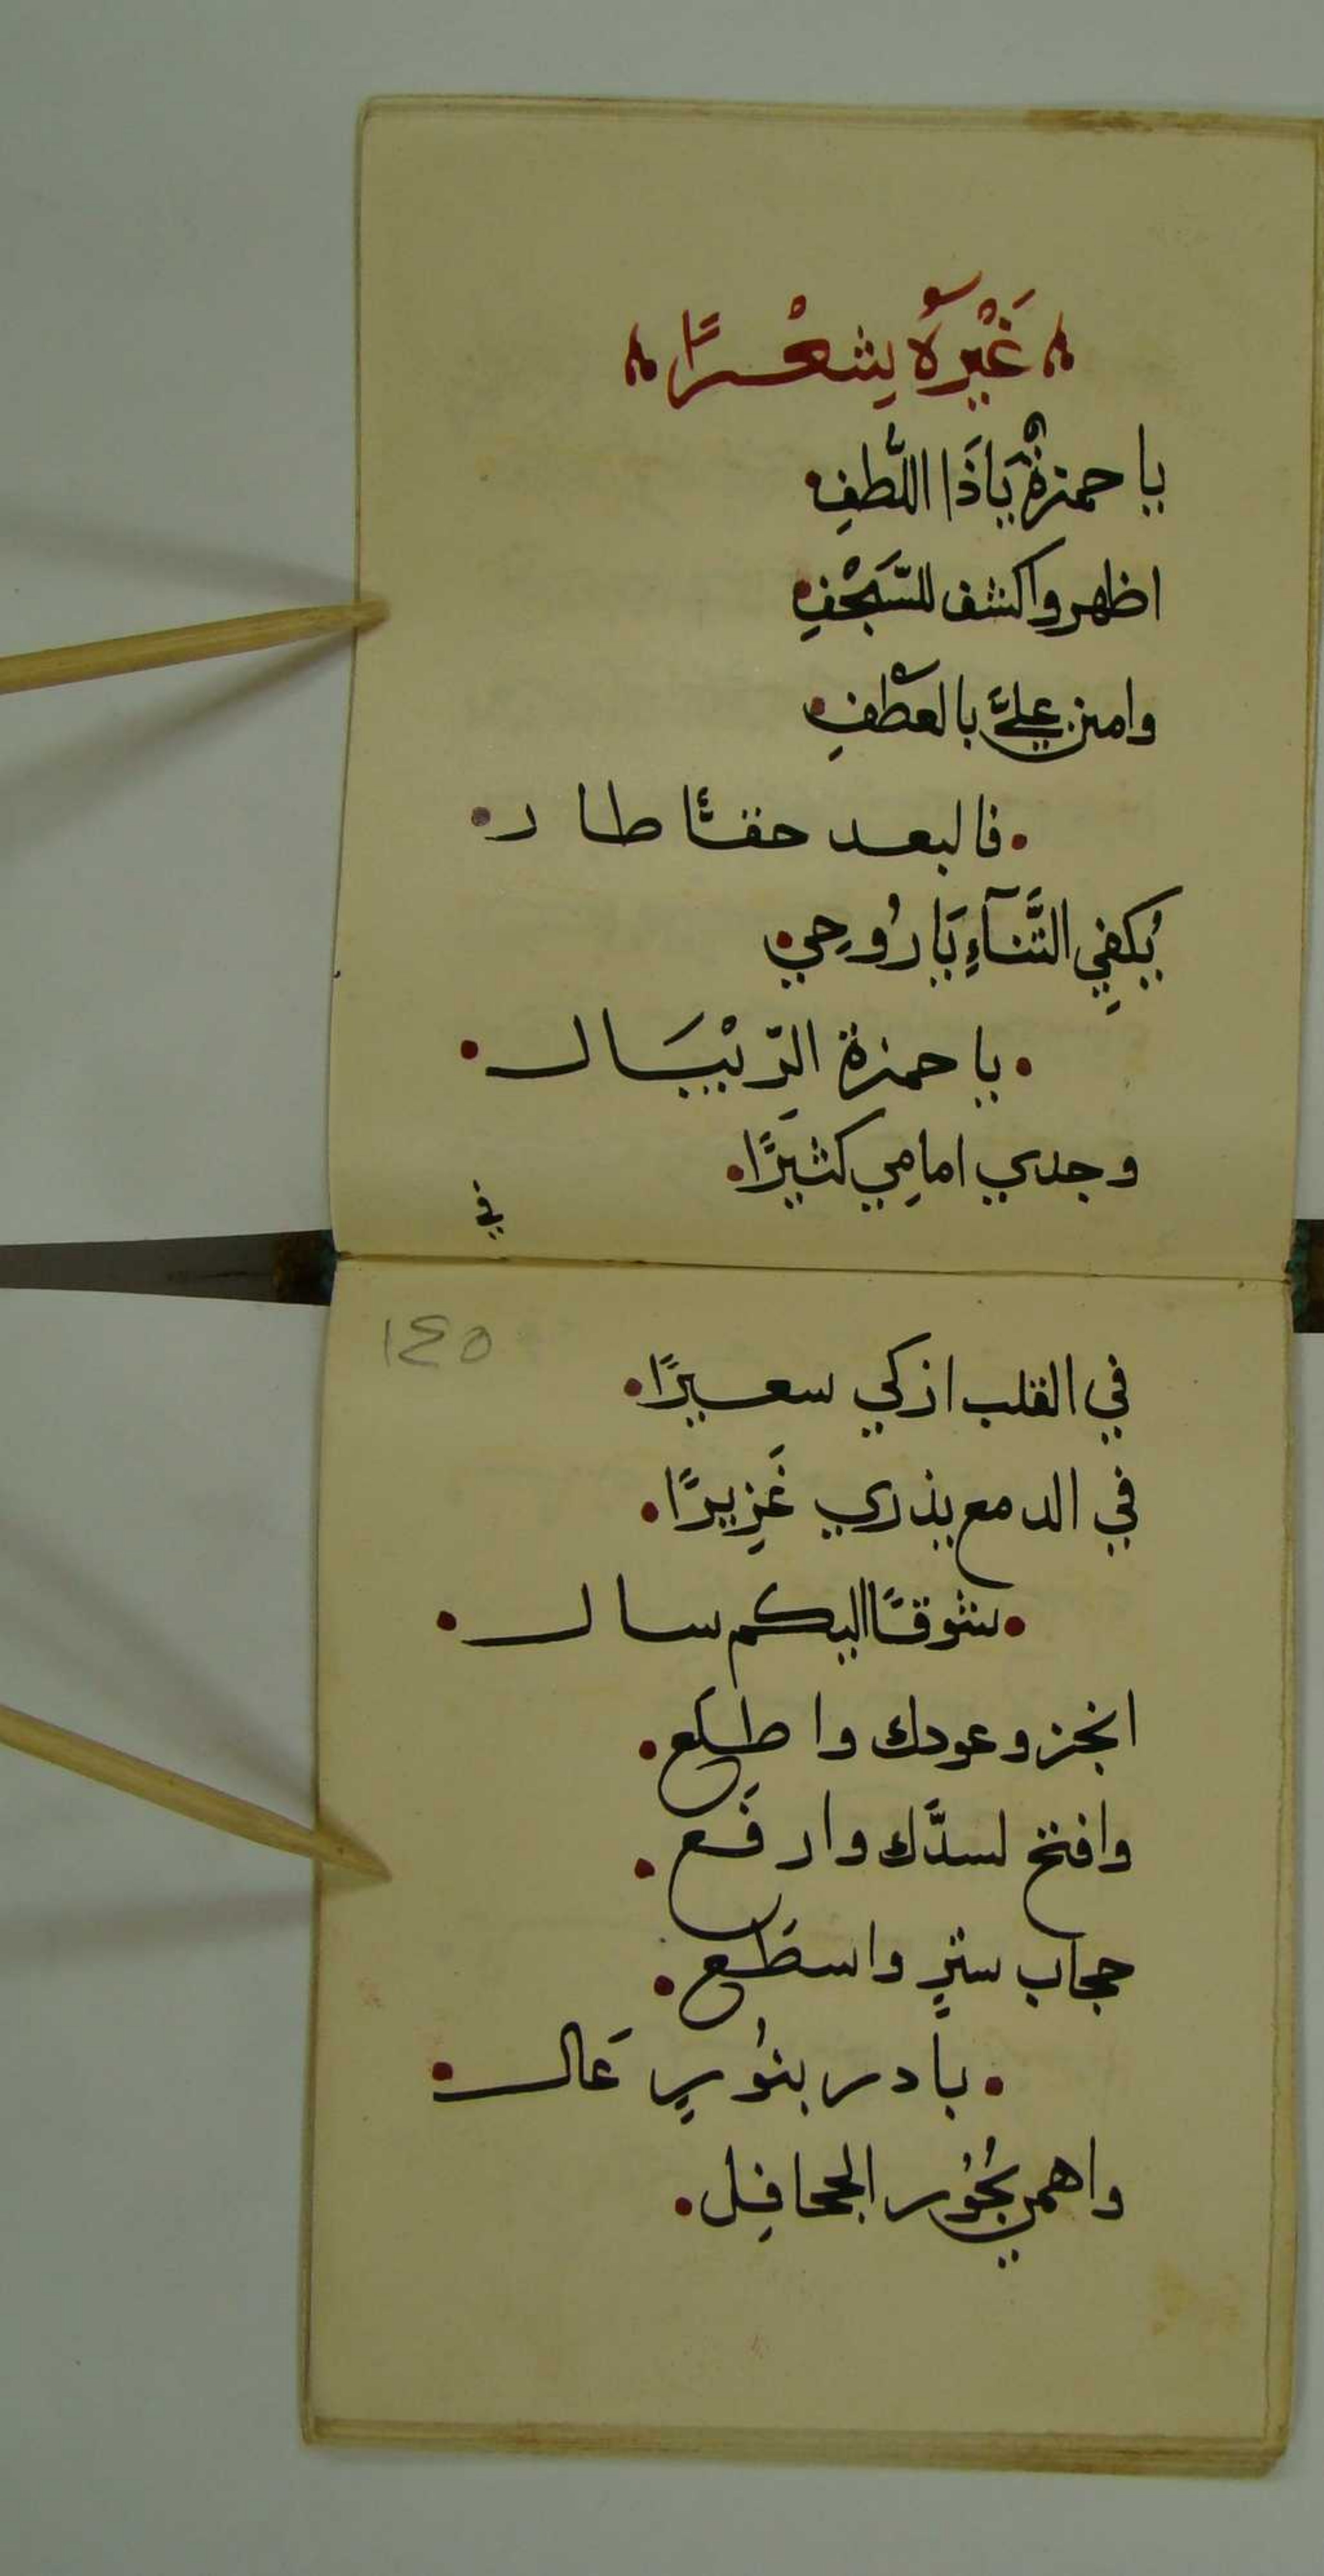 غَيْرُهُ شِعْرًا
يا حمزةُ يَاذَا اللّطفِ
اظهر واكشف للسَّجْفِ
وامنن عليَّ بالعَطْفِ
فالبعد حقًّا طال
يكفِي التَّنآءِ يَا رُوحِي
يا حمزة الرّيْبَال
وجدي امامِي كثيرًا
في
١٤٥
في القلب ازكي سعيرًا
في الدمع يذري غَزِيرًا
شوقًا اليكم سال
انجز وعودك واطلَع
وافتح لسدَّك وارفَع
حجاب سترٍ واسطَع
بادر بنُورٍ عَال
واهمي بحُور الجحافِل